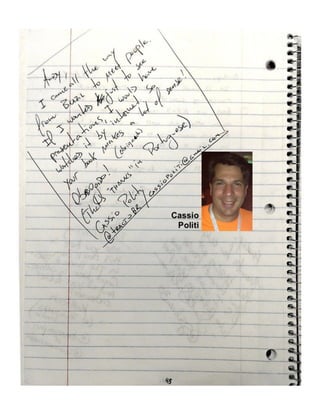 Andy,
I came all the way
from Brazil to meet people.
If I wanted just to see
presentations, I would have
watched it by internet. So
your book makes a lot of sense!
OBRIGADO!
(that's thanks in Portuguese)
Cassio Politi
@tracto_BR / cassiopoliti@gmail.com
Cassio
Politi